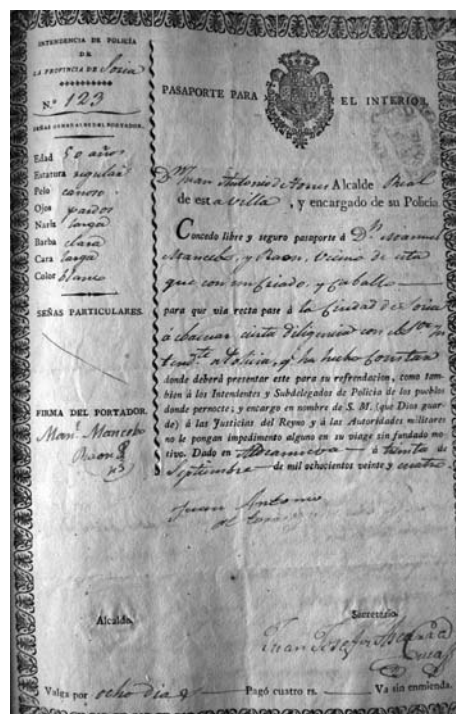 INTENDENCIA DE POLICÍA
DE
LA PROVINCIA DE Soria
N.º 123
SEÑAS GENERALES DEL PORTADOR.
Edad 50 años
Estatura regular
Pelo canoso
Ojos pardos
Nariz larga
Barba clara
Cara larga
Color blanco
SEÑAS PARTICULARES.
FIRMA DEL PORTADOR.
Man.l Mancebo
Raon
PASAPORTE PARA EL INTERIOR.
D.n Juan Antonio de Alcalde Real
de esta Villa, y encargado de su Policía
Concedo libre y seguro pasaporte á D.n Manuel
Mancebo, y Raon, Vecino de esta
que con un Criado, y Caballo
para que via recta pase á la Ciudad de Soria
á ebacuar cierta diligencia con el
de Policia, q.e ha hecho constar
donde deberá presentar este para su refrendacion, como tam-
bien á los Intendentes y Subdelegados de Policía de los pueblos
donde pernocte; y encargo en nombre de S. M. (que Dios guar-
de) á las Justicias del Reyno y á las Autoridades militares
no le pongan impedimento alguno en su viage sin fundado mo-
tivo. Dado en á treinta de
Septiembre de mil ochocientos veinte y cuatro.
Juan Antonio
Alcalde.
Secretario.
Juan Josef
Valga por ocho dias Pagó cuatro rs. Va sin enmienda.